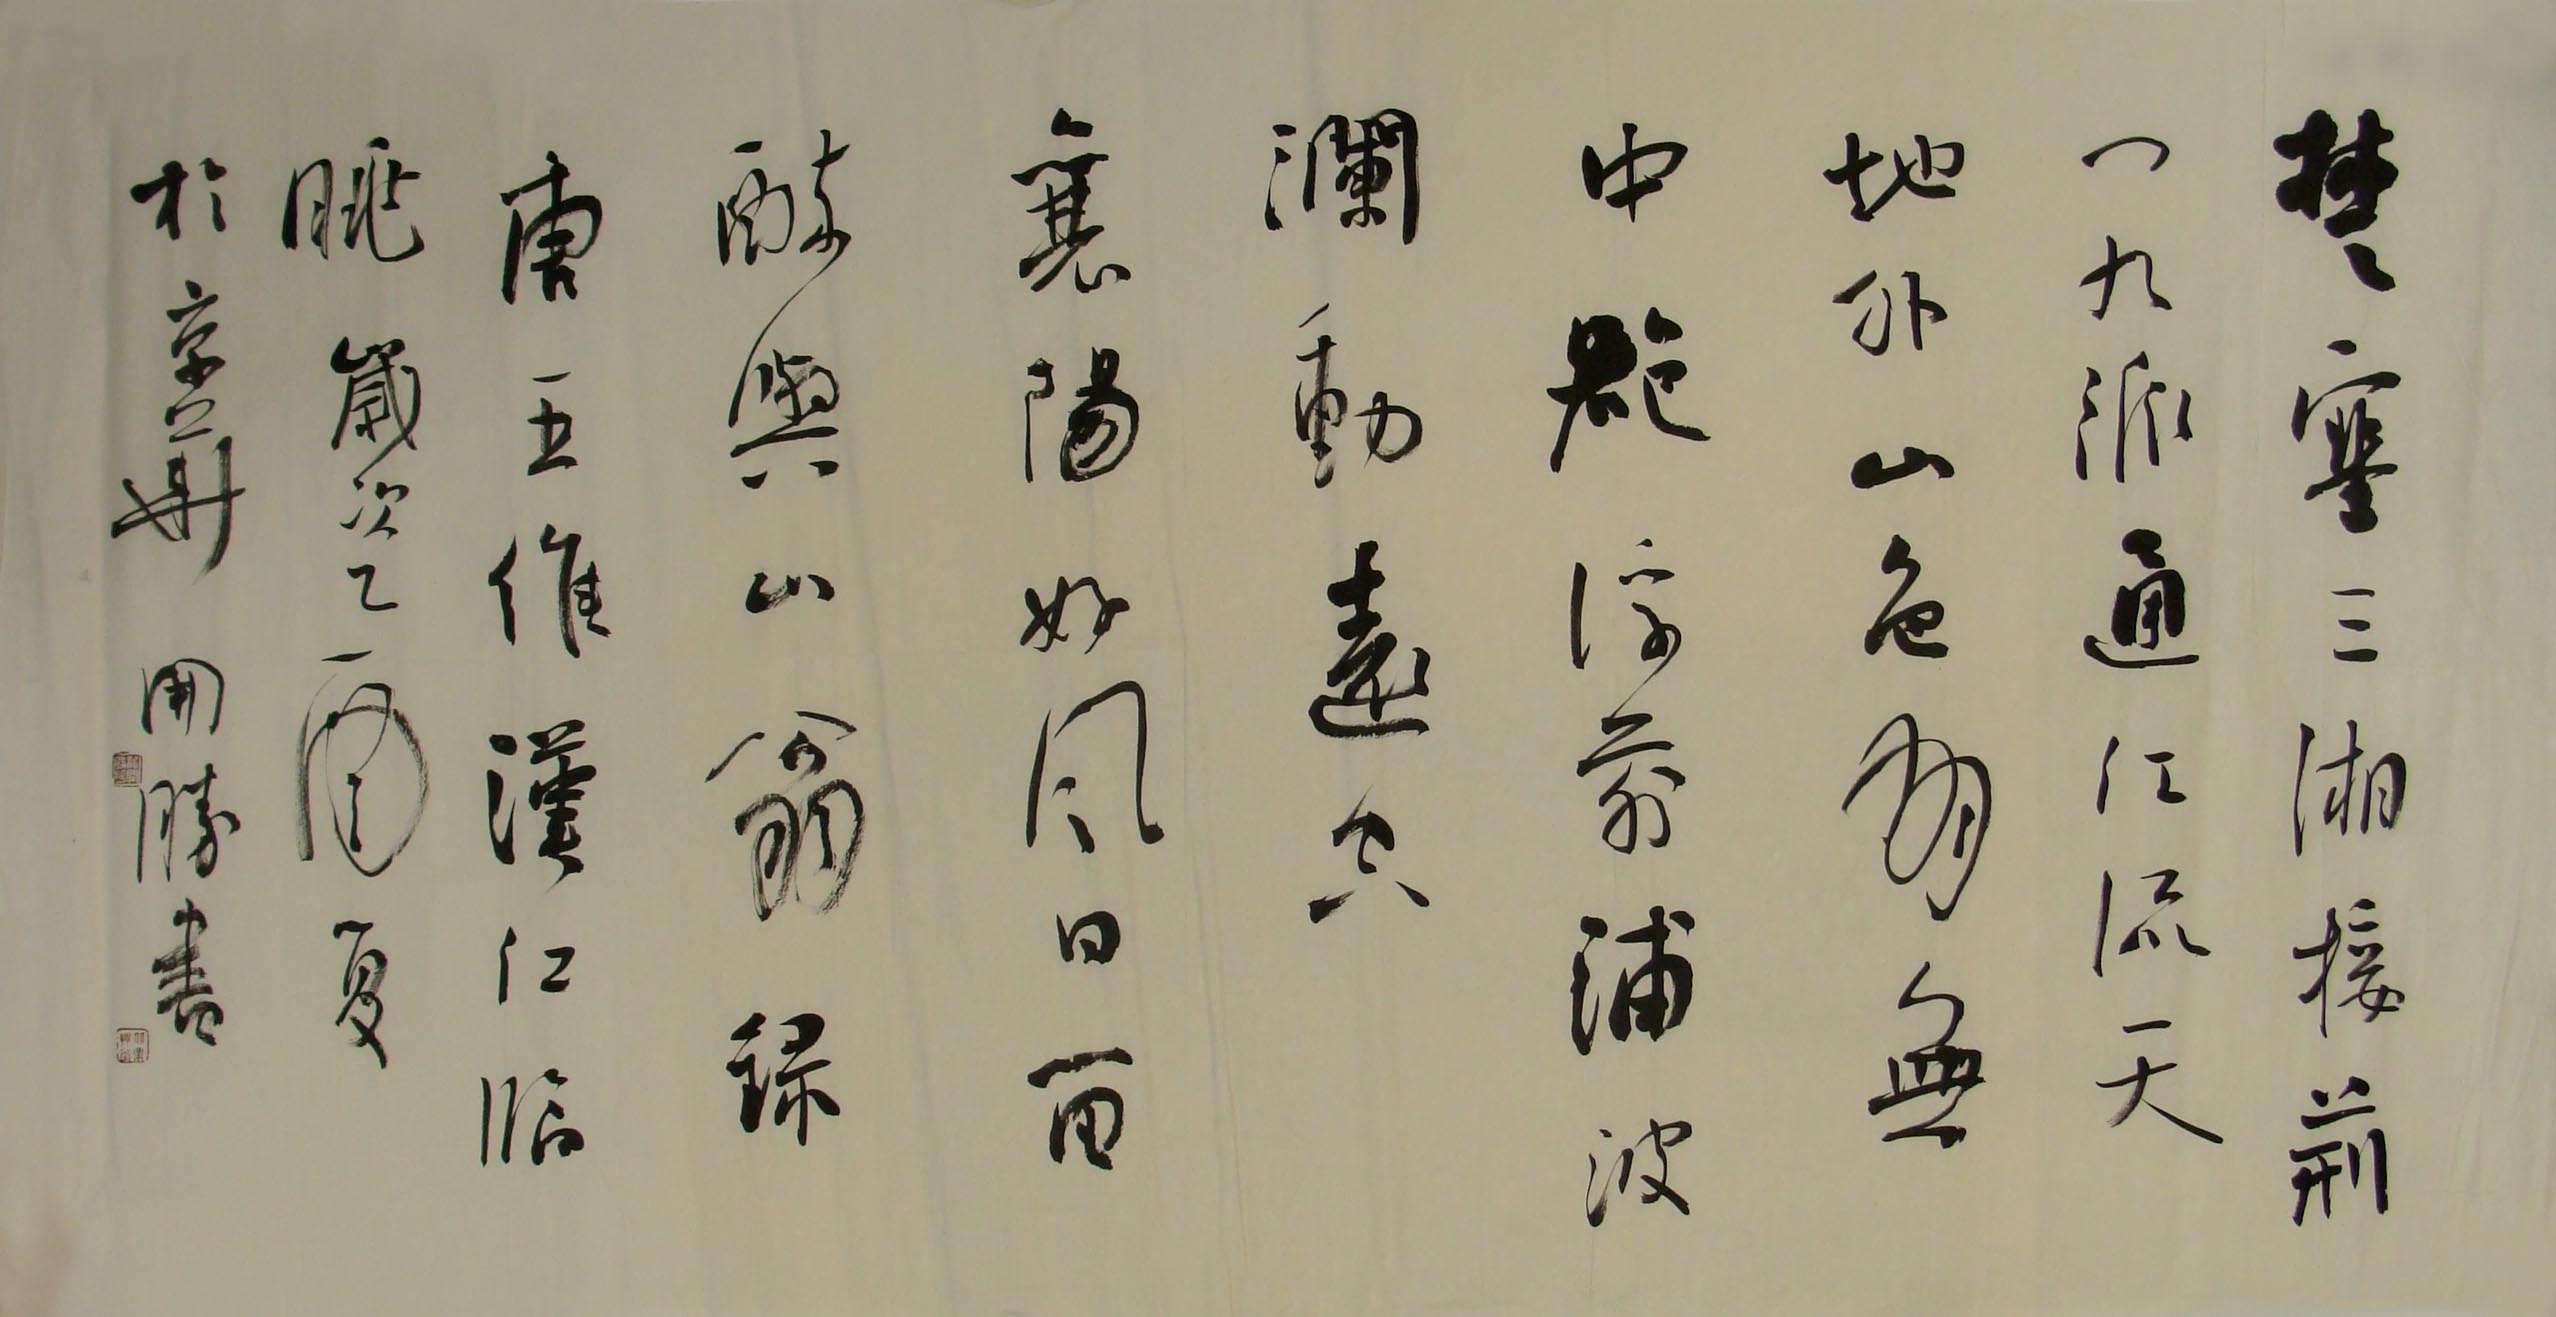 楚塞三湘接荊
门九派通江流天
地外山色有無
中郡邑浮前浦波
瀾動遠空
襄陽好風日留
醉與山翁 錄
唐王維漢江臨
眺 歲次乙酉夏
於京華 開勝書